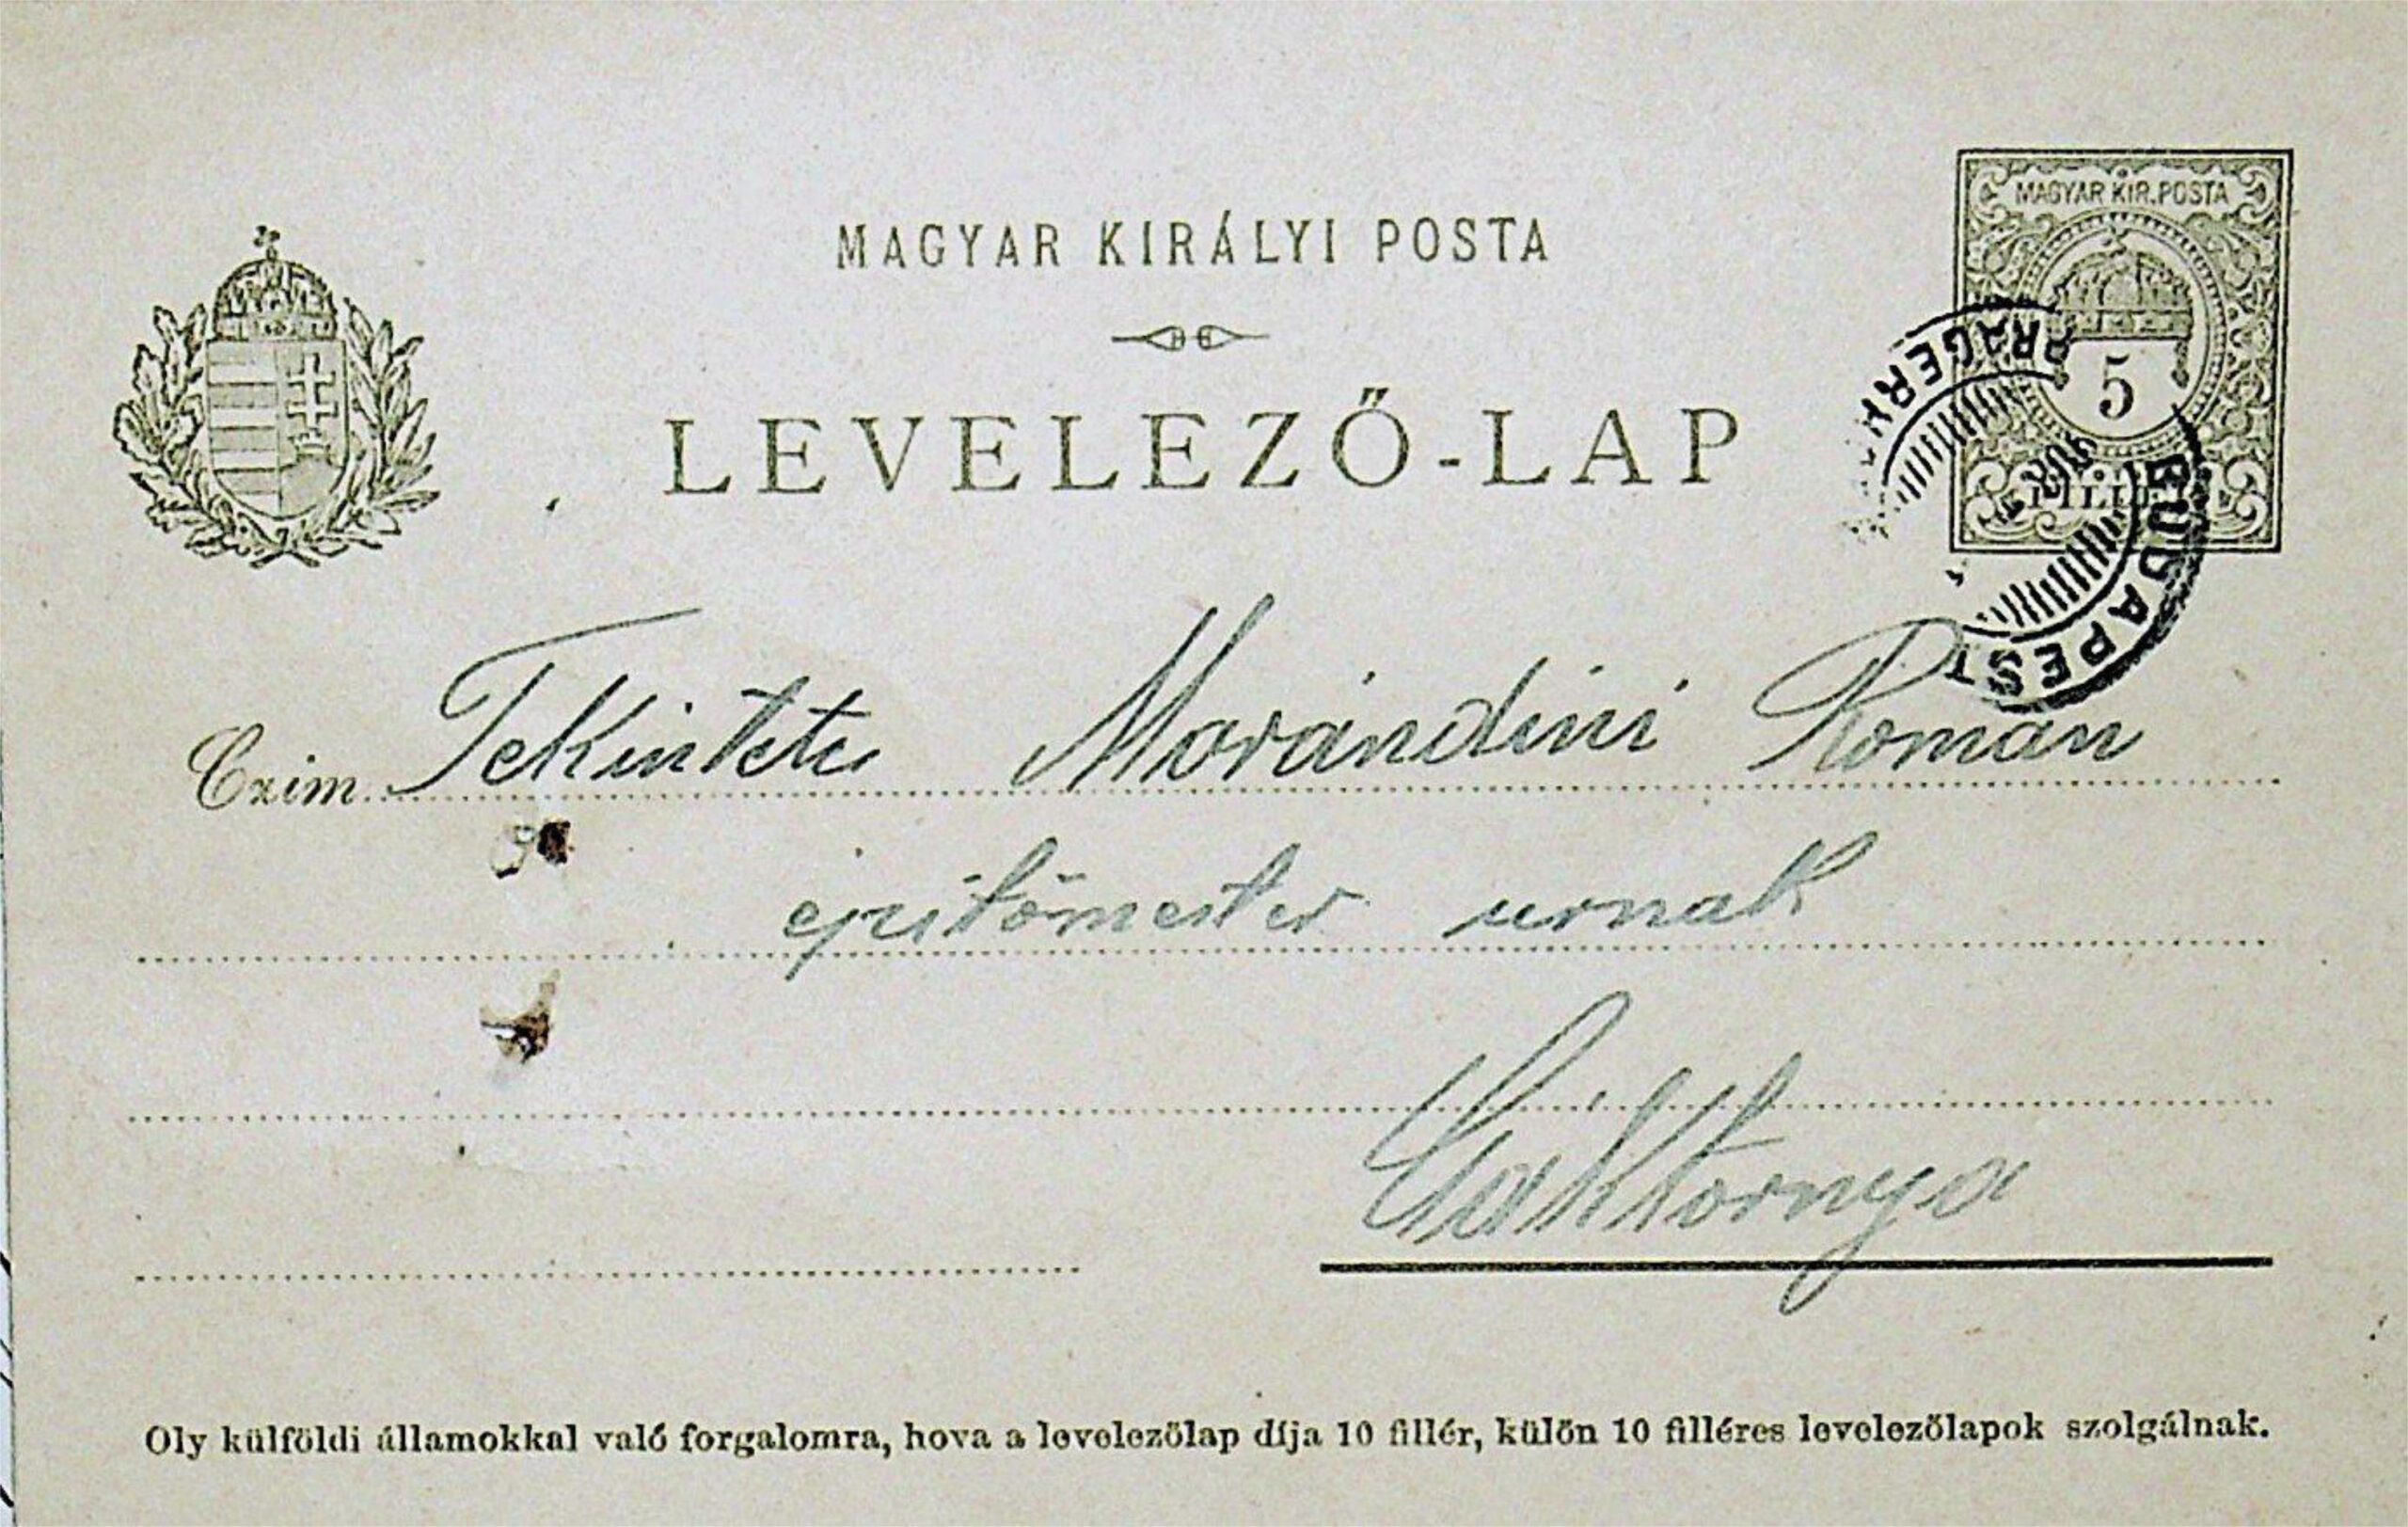 MAGYAR KIR. POSTA
5
MAGYAR KIRÁLYI POSTA
LEVELEZŐ-LAP
BUDAPEST
Czim Tekintetes Morándini Roman
epitőmester urnak
Csáktornya
Oly külföldi államokkal való forgalomra, hova a levelezőlap díja 10 fillér, külön 10 filléres levelezőlapok szolgálnak.